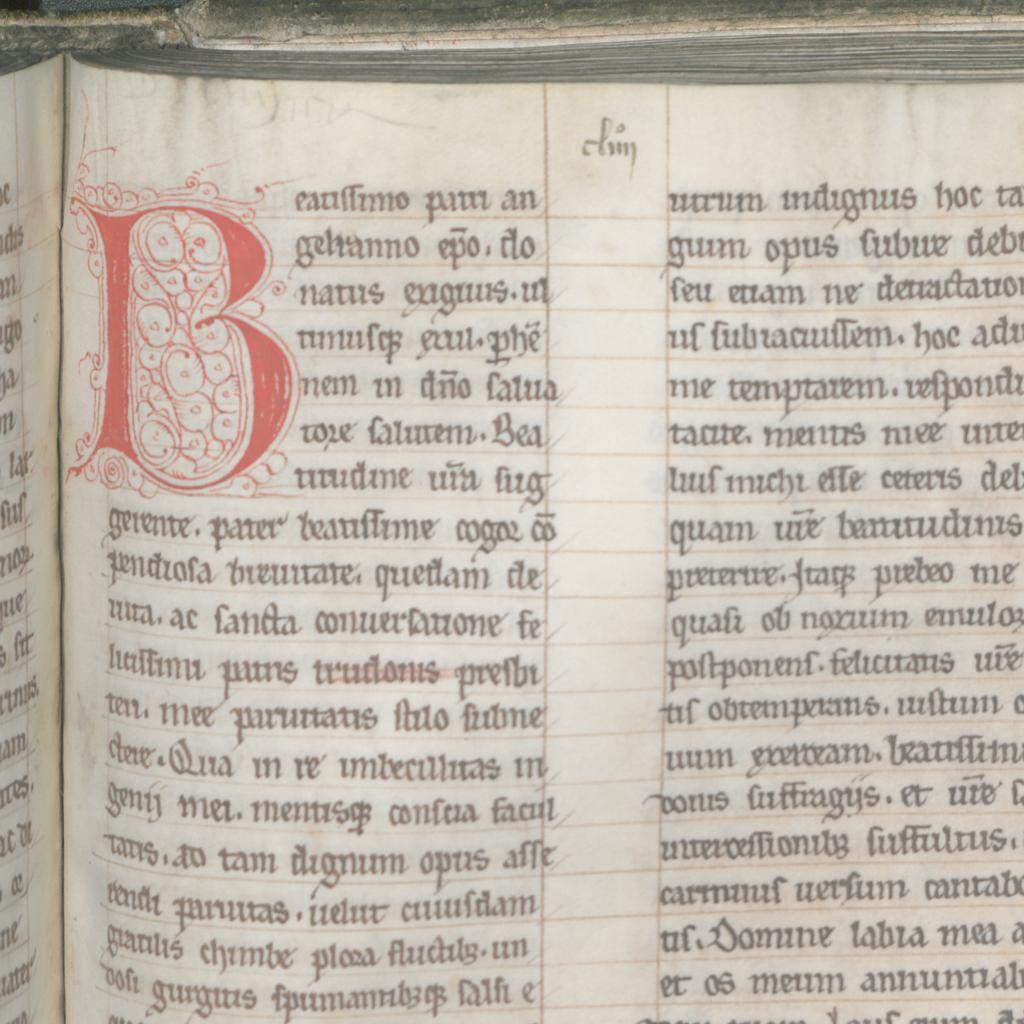 cliiij
Beatissimo patri an
gelranno ep̄o. do
natus exiguus. ul
timusqꝫ exul. ꝑhē
nem in dn̄o salua
tore salutem. Bea
titudine ur̄a sug
gerente. pater beatissime cogor cō
pendiosa breuitate. quedam de
uita. ac sancta conuersatione fe
licissimi patris trudonis presbi
teri. mee paruitatis stilo subne
ctere. Qua in re imbecillitas in
genij mei. mentisqꝫ conscia facul
tatis. ad tam dignum opus asse
rendi paruitas. uelut cuiusdam
gracilis chimbe plora fluctibꝫ. un
dosi gurgitis spumantibꝫqꝫ salsi e
utrum indignus hoc ta
gum opus subire deb
seu etiam ne detractation
us subiacuissem. hoc adu
me temptarem. respondi
tacite. mentis mee inte
luis michi esse ceteris del
quam ur̄e beatitudinis
preterire. Itaqꝫ prebeo me
quasi ob noxium emulor
postponens. felicitatis ur̄e
tis obtemperans. iustum o
uum exerceam. beatissim
donis suffragijs. et ur̄e s
intercessionibꝫ suffultus.
carminis uersum cantab
tis. Domine labia mea a
et os meum annuntiab